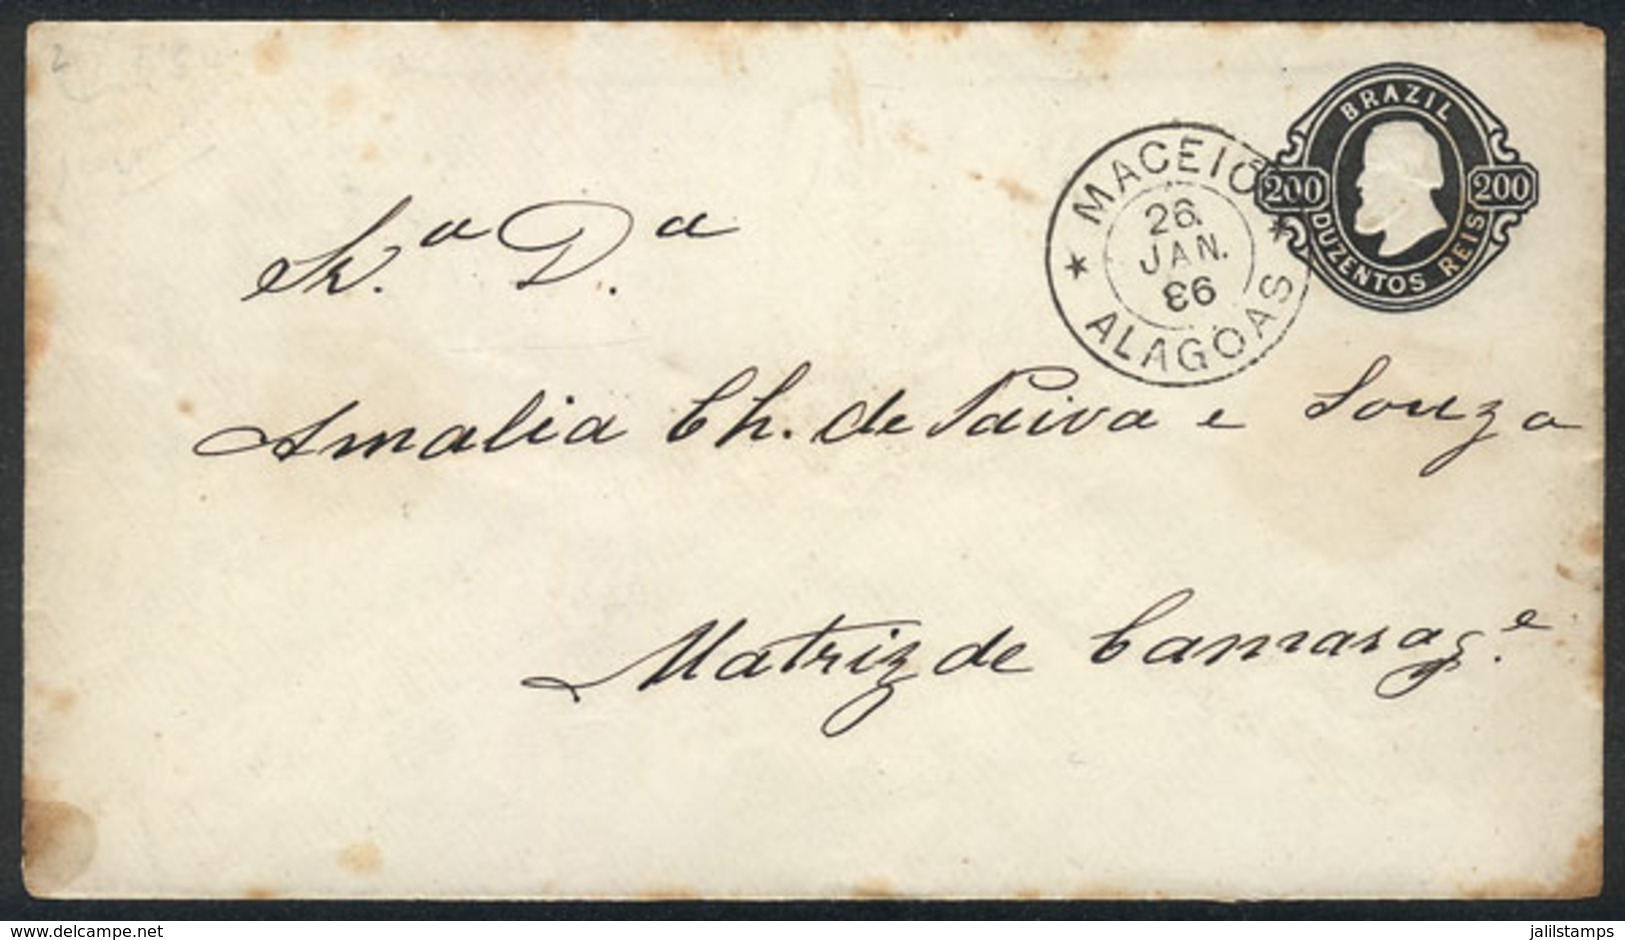 BRAZIL
200 200
DUZENTOS REIS
MACEIO
26.
JAN.
86
ALAGOAS
D.ª
Amalia Ch. de Paiva e Souza
Matriz de Camarag.e
delcampe.net
jalilstamps